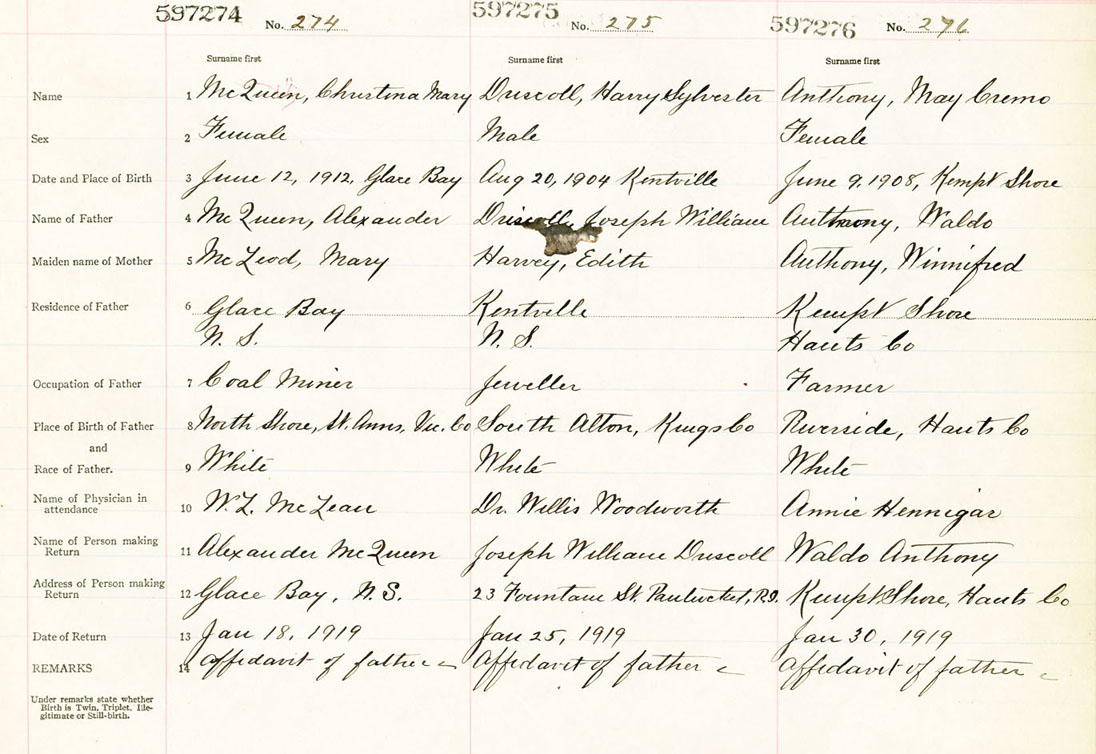 597274 No. 274 597275 No. 275 597276 No. 276
Surname first Surname first Surname first
Name 1 McQueen, Christina Mary Driscoll, Harry Sylvester Anthony, May Cremo
Sex 2 Female Male Female
Date and Place of Birth 3 June 12, 1912, Glace Bay Aug 20, 1904 Kentville June 9, 1908, Kempt Shore
Name of Father 4 McQueen, Alexander Driscoll, Joseph William Anthony, Waldo
Maiden name of Mother 5 McLeod, Mary Harvey, Edith Anthony, Winnifred
Residence of Father 6 Glace Bay Kentville Kempt Shore
N. S. N. S. Hants Co
Occupation of Father 7 Coal Miner Jeweller Farmer
Place of Birth of Father 8 North Shore, St. Anns, Vic. Co South Alton, Kings Co Riverside, Hants Co
and
Race of Father. 9 White White White
Name of Physician in
attendance 10 W. L. McLean Dr. Willis Woodworth Annie Hennigar
Name of Person making
Return 11 Alexander McQueen Joseph William Driscoll Waldo Anthony
Address of Person making
Return 12 Glace Bay, N.S. 23 Fountain St. Pautucket, R.I. Kempt Shore, Hants Co
Date of Return 13 Jan 18, 1919 Jan 25, 1919 Jan 30, 1919
REMARKS 14 Affidavit of father Affidavit of father Affidavit of father
Under remarks state whether
Birth is Twin, Triplet, Ille-
gitimate or Still-birth.